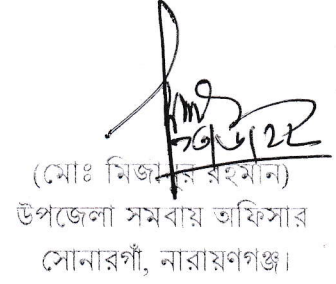 (মোঃ মিজানুর রহমান)
উপজেলা সমবায় অফিসার
সোনারগাঁ, নারায়ণগঞ্জ।